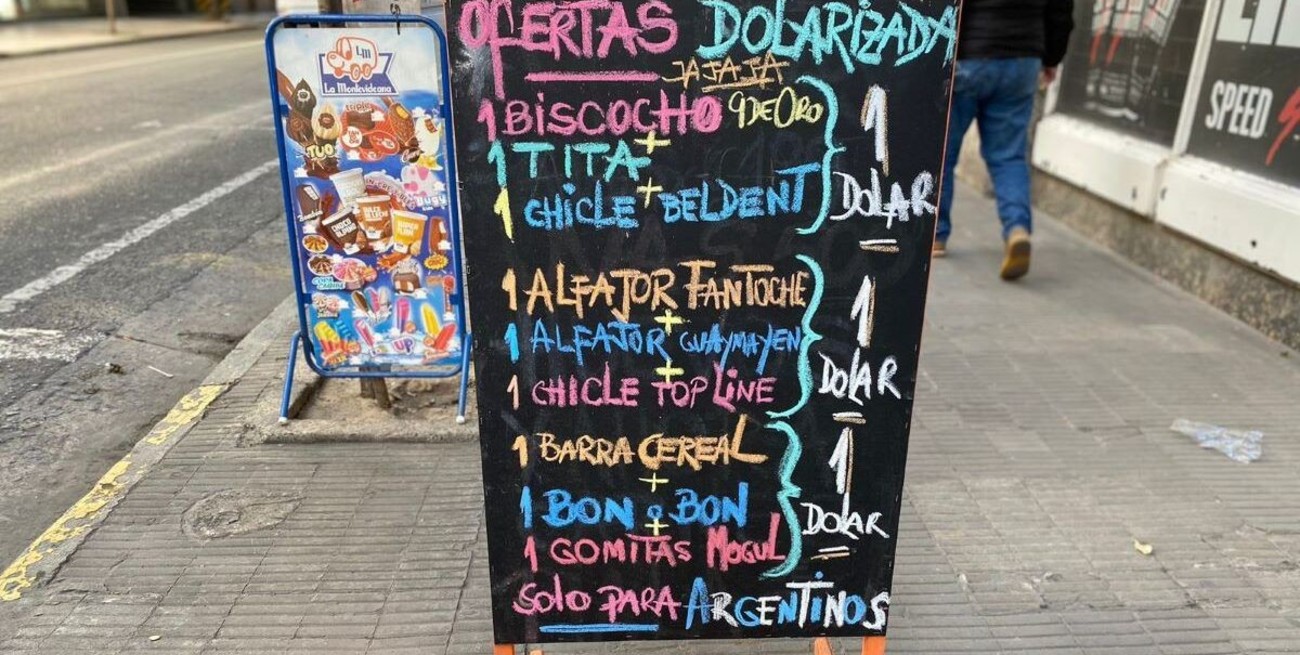 OFERTAS DOLARIZADA
JAJAJA
1 BISCOCHO 9 DE ORO
+
1 TITA
+
1 CHICLE BELDENT
1 DOLAR
1 ALFAJOR FANTOCHE
+
1 ALFAJOR GUAYMAYEN
+
1 CHICLE TOP LINE
1 DOLAR
1 BARRA CEREAL
+
1 BON o BON
+
1 GOMITAS MOGUL
1 DOLAR
SOLO PARA ARGENTINOS
LM
La Montevideana
TUO
SPEED